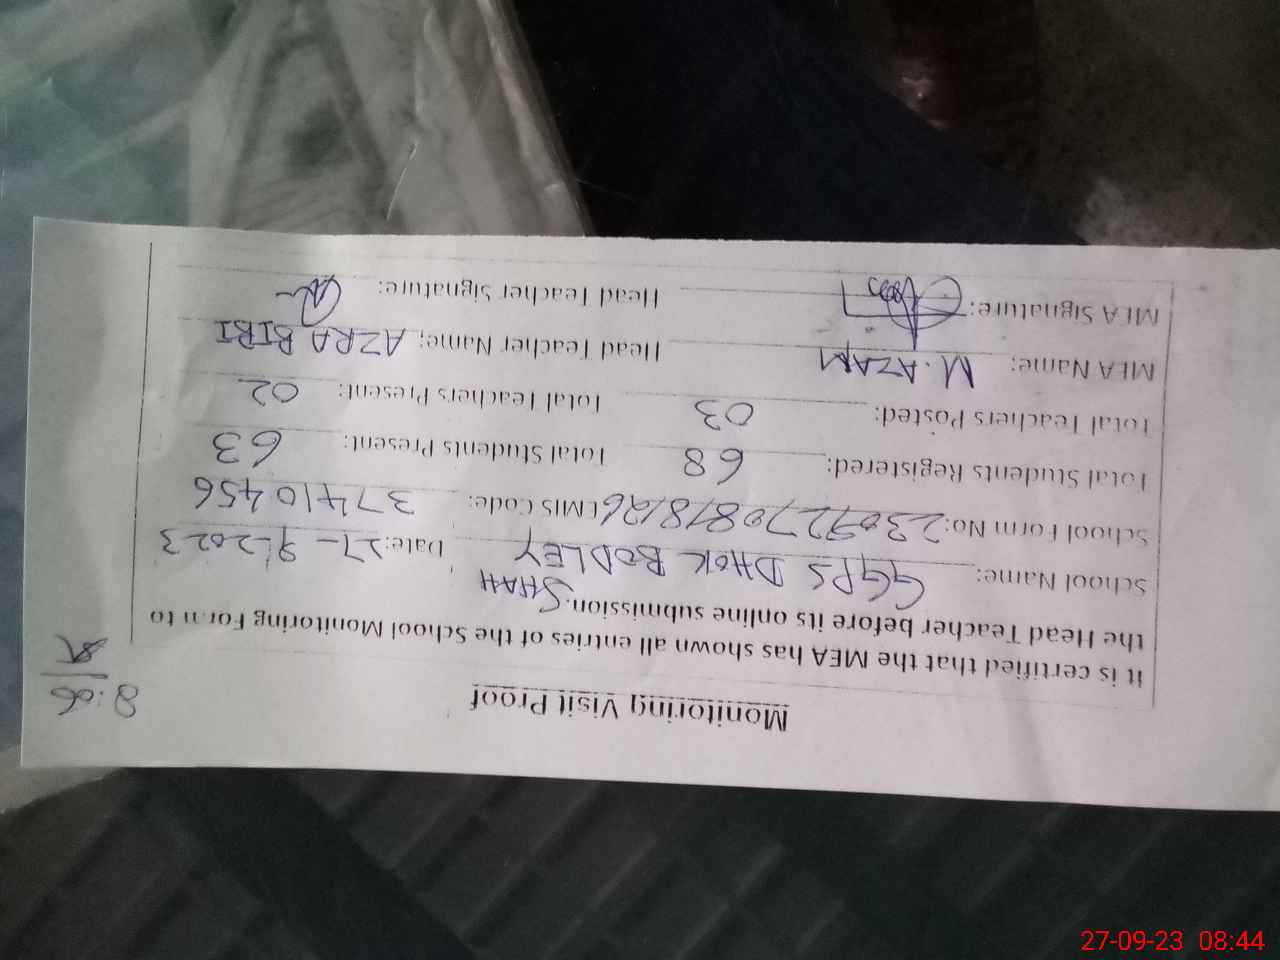 Monitoring Visit Proof
8:06
it is certified that the MEA has shown all entries of the School Monitoring Form to
the Head Teacher before its online submission. SHAH
School Name: GGPS DHOK BODLEY Date: 27-9-2023
School Form No: 2309270818126 EMIS Code: 37410456
Total Students Registered: 68 Total Students Present: 63
Total Teachers Posted: 03 Total Teachers Present: 02
MEA Name: M. AZAM Head Teacher Name: AZRA BIBI
MEA Signature: Head Teacher Signature:
27-09-23 08:44